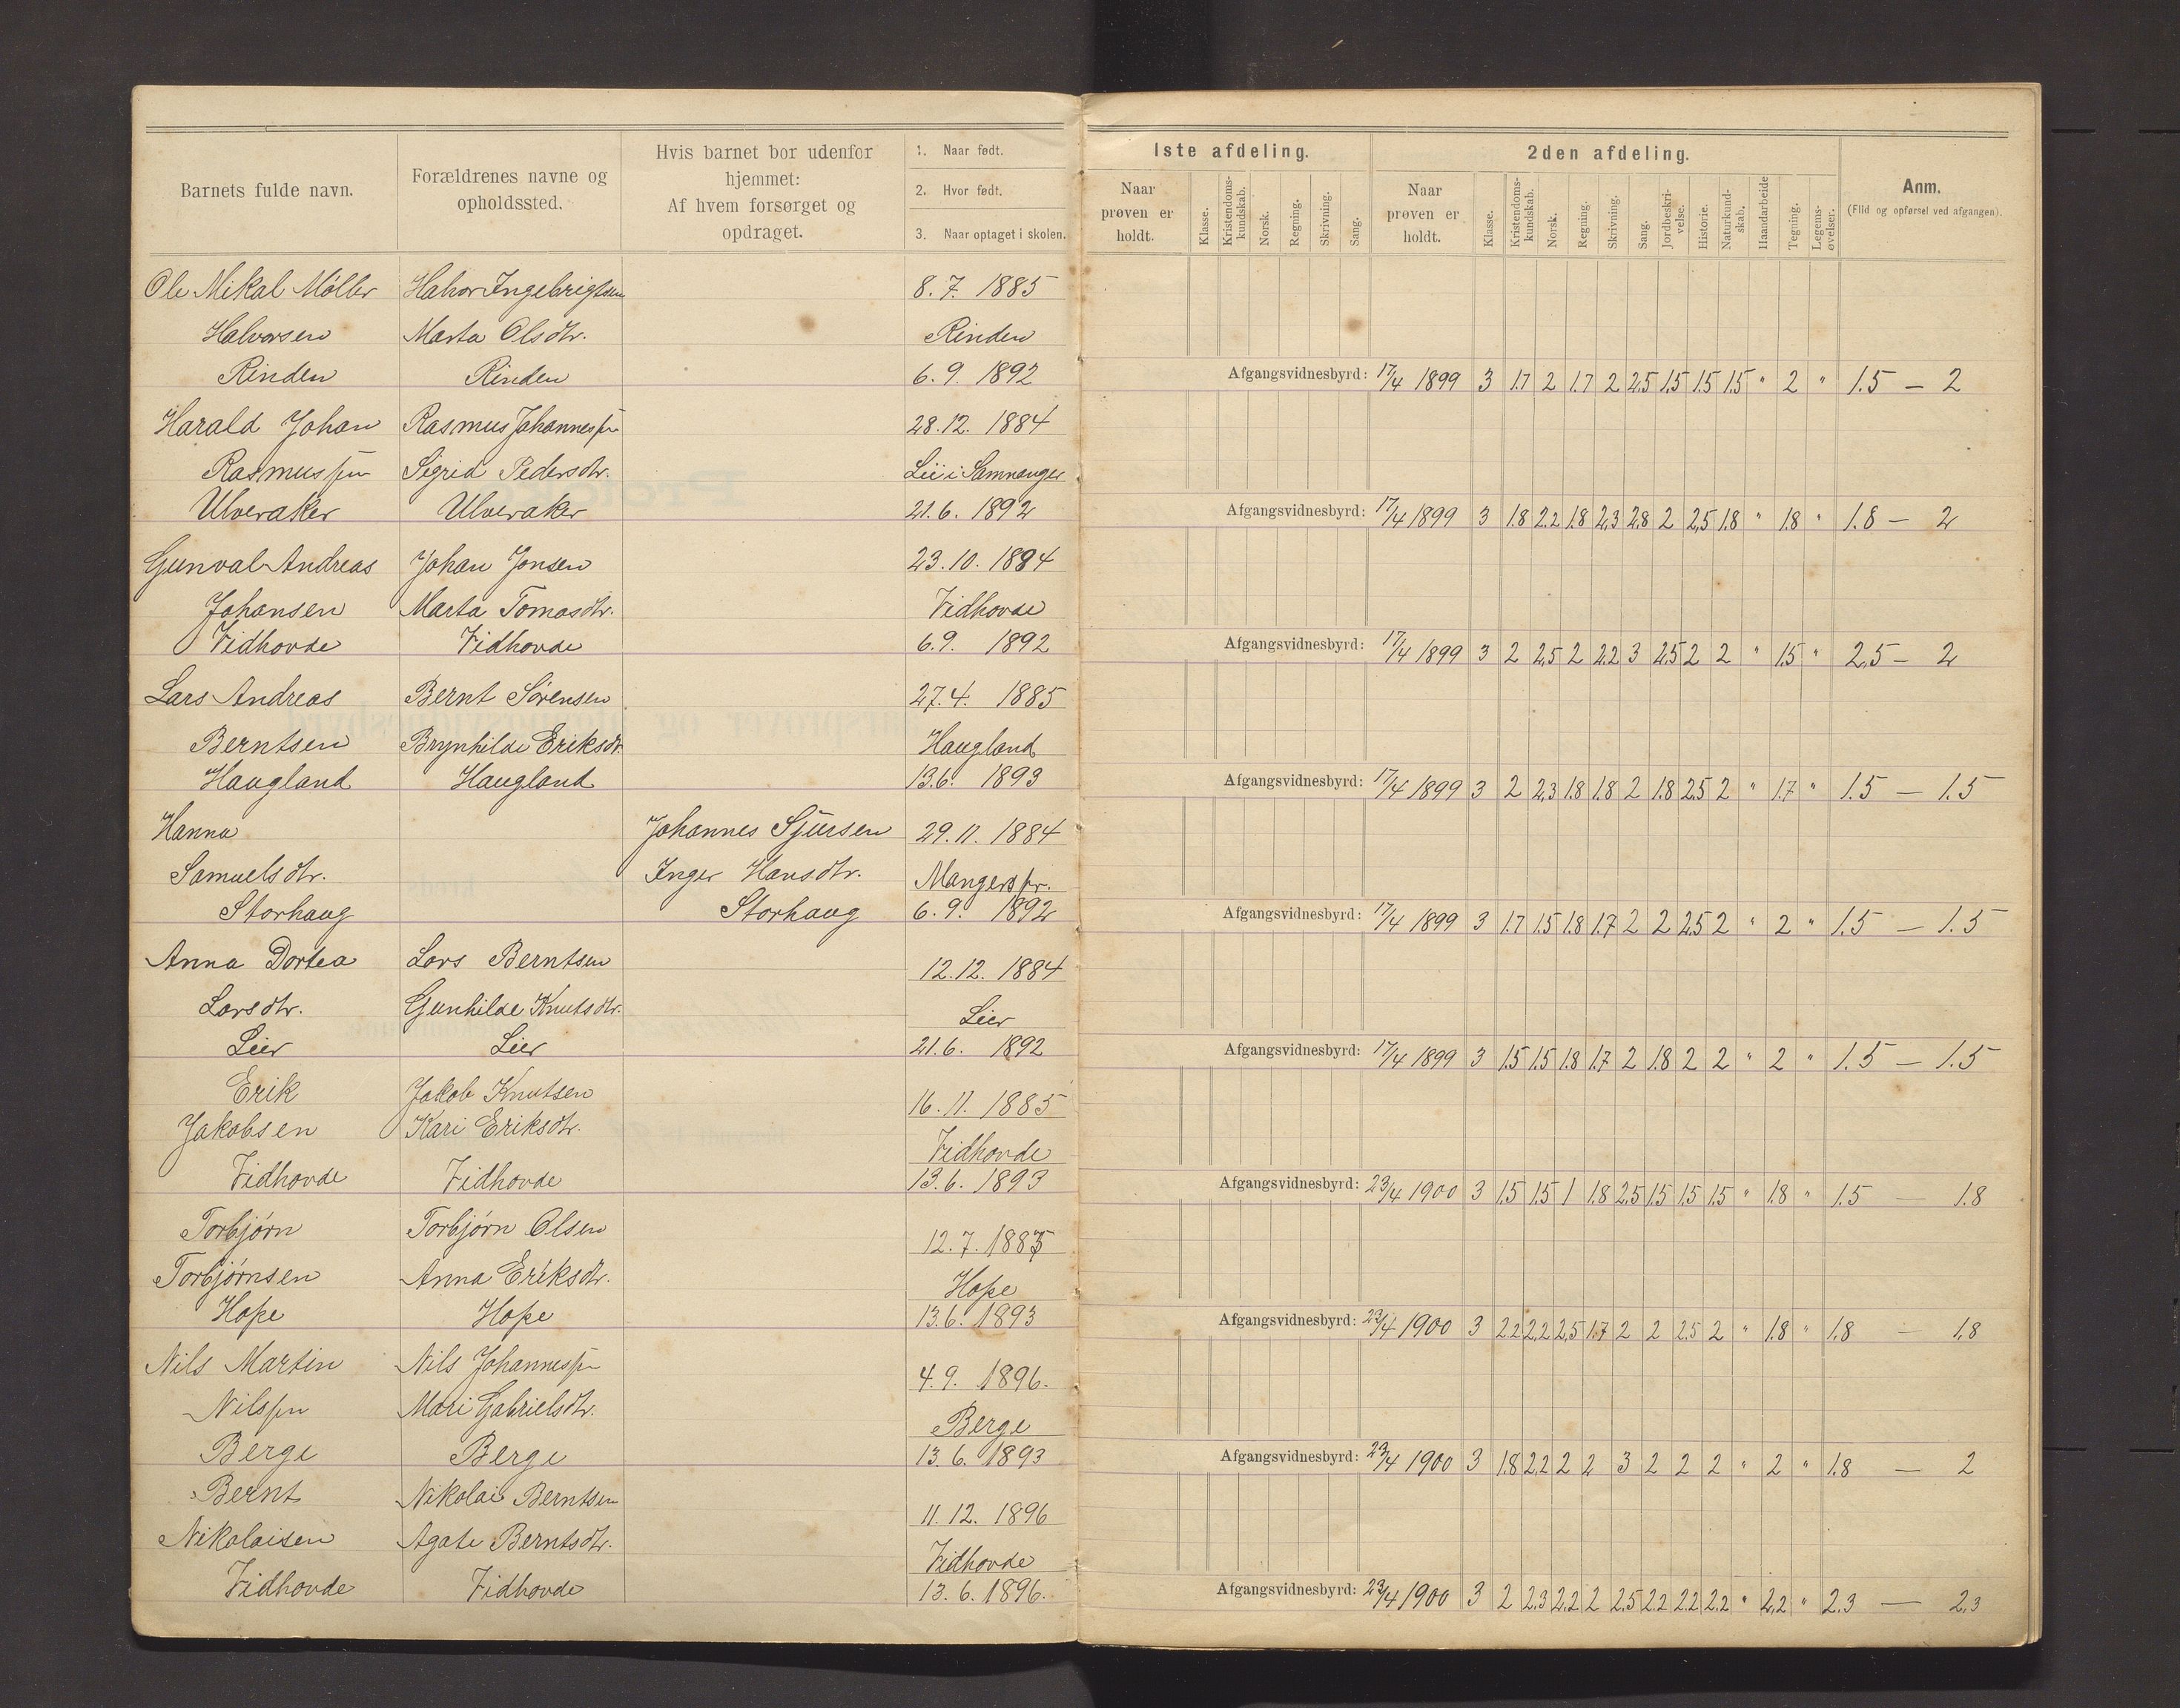 Barnets fulde navn.
Forældrenes navne og
opholdssted.
Hvis barnet bor udenfor
hjemmet:
Af hvem forsørget og
opdraget.
1. Naar født.
2. Hvor født.
3. Naar optaget i skolen.
1ste afdeling.
Naar
prøven er
holdt.
Klasse.
Kristendoms-
kundskab.
Norsk.
Regning.
Skrivning.
Sang.
2den afdeling.
Naar
prøven er
holdt.
Klasse.
Kristendoms-
kundskab.
Norsk.
Regning.
Skrivning.
Sang.
Jordbeskri-
velse.
Historie.
Naturkund-
skab.
Haandarbeide
Tegning.
Legems-
øvelser.
Anm.
(Flid og opførsel ved afgangen).
Ole Mikal Møller Halvor Ingebrigtsen 8. 7. 1885
Halvorsen Marta Olsdtr. Rinden
Rinden Rinden 6. 9. 1892 Afgangsvidnesbyrd: 17/4 1899 3 1.7 2 1.7 2 2.5 1.5 1.5 1.5 " 2 " 1.5 — 2
Harald Johan Rasmus Johannessen 28. 12. 1884
Rasmussen Sigrid Pedersdtr. Lii i Samnanger
Ulveraker Ulveraker 21. 6. 1892 Afgangsvidnesbyrd: 17/4 1899 3 1.8 2.2 1.8 2.3 2.8 2 2.5 1.8 " 1.8 " 1.8 — 2
Gunval Andreas Johan Jonsen 23. 10. 1884
Johansen Marta Tomasdtr. Vidhovde
Vidhovde Vidhovde 6. 9. 1892 Afgangsvidnesbyrd: 17/4 1899 3 2 2.5 2 2.2 3 2.5 2 2 " 1.5 " 2.5 — 2
Lars Andreas Bernt Sørensen 27. 4. 1885
Berntsen Brynhilde Eriksdtr. Haugland
Haugland Haugland 13. 6. 1893 Afgangsvidnesbyrd: 17/4 1899 3 2 2.3 1.8 1.8 2 1.8 2.5 2 " 1.7 " 1.5 — 1.5
Hanna Johannes Sjursen 29. 11. 1884
Samuelsdtr. Inger Hansdtr. Mangers pr.
Storhaug Storhaug 6. 9. 1892 Afgangsvidnesbyrd: 17/4 1899 3 1.7 1.5 1.8 1.7 2 2 2.5 2 " 2 " 1.5 — 1.5
Anna Dortea Lars Berntsen 12. 12. 1884
Larsdtr. Gunhilde Knutsdtr. Lier
Lier Lier 21. 6. 1892 Afgangsvidnesbyrd: 17/4 1899 3 1.5 1.5 1.8 1.7 2 1.8 2 2 " 2 " 1.5 — 1.5
Erik Jakob Knutsen 16. 11. 1885
Jakobsen Kari Eriksdtr. Vidhovde
Vidhovde Vidhovde 13. 6. 1893 Afgangsvidnesbyrd: 23/4 1900 3 1.5 1.5 1 1.8 2.5 1.5 1.5 1.5 " 1.8 " 1.5 — 1.8
Torbjørn Torbjørn Olsen 12. 7. 1885
Torbjørnsen Anna Eriksdtr. Hope
Hope Hope 13. 6. 1893 Afgangsvidnesbyrd: 23/4 1900 3 2.2 2.2 2.5 1.7 2 2 2.5 2 " 1.8 " 1.8 — 1.8
Nils Martin Nils Johannessen 4. 9. 1896.
Nilssen Mari Gabrielsdtr. Berge
Berge Berge 13. 6. 1893 Afgangsvidnesbyrd: 23/4 1900 3 1.8 2.2 2 2 3 2 2 2 " 2 " 1.8 — 2
Bernt Nikolai Berntsen 11. 12. 1896
Nikolaisen Agate Berntsdtr. Vidhovde
Vidhovde Vidhovde 13. 6. 1896. Afgangsvidnesbyrd: 23/4 1900 3 2 2.3 2.2 2 2.5 2.2 2.2 2.2 " 2.2 " 2.3 — 2.3